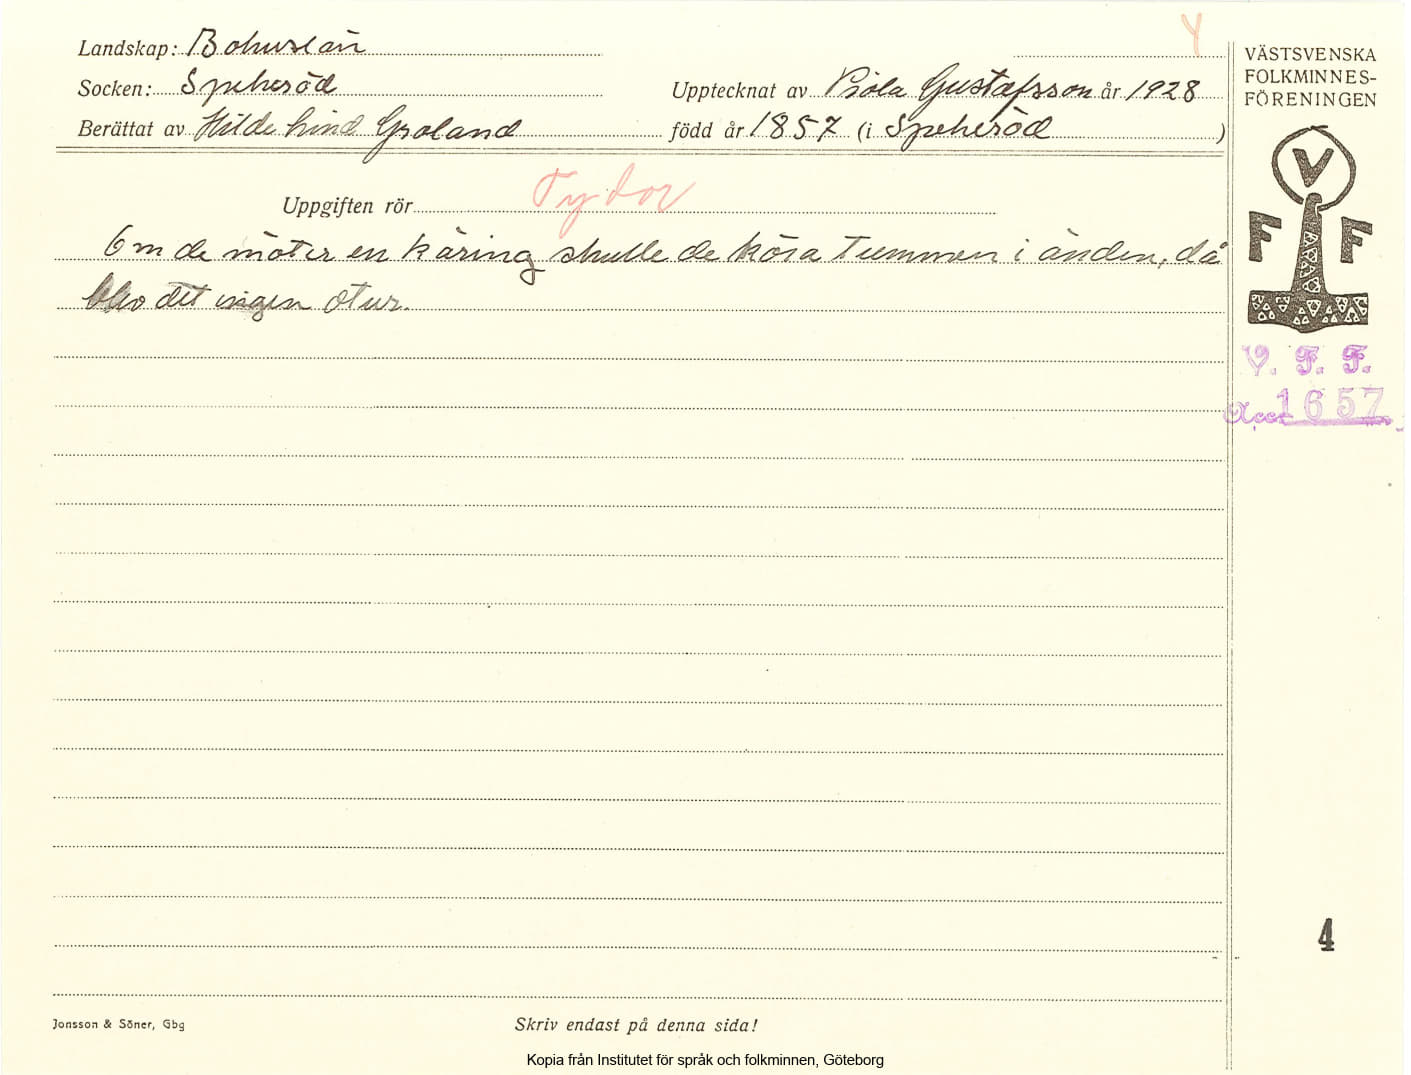 Y
Landskap: Bohuslän
Socken: Spekeröd
Upptecknat av Viola Gustafsson år 1928
Berättat av Hilde Groland
född år 1857 (i Spekeröd )
VÄSTSVENSKA
FOLKMINNES-
FÖRENINGEN
V
F F
V. F. F.
Acc. 1657
Uppgiften rör Tydor
Om de möter en käring skulle de köra tummen i änden, då
blev det ingen otur.
4
Jonsson & Söner, Gbg
Skriv endast på denna sida!
Kopia från Institutet för språk och folkminnen, Göteborg